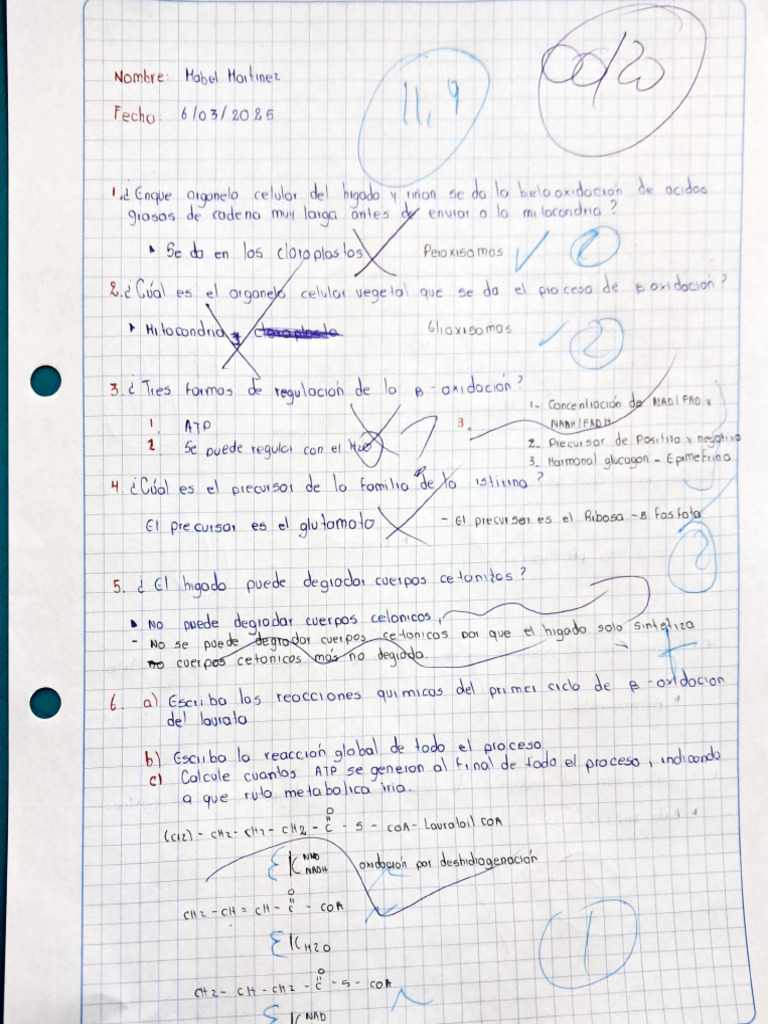 Nombre: Mabel Martinez
11,9
00/20
Fecha: 6/03/2025
1.¿Enque organelo celular del higado y riñon se da la betaoxidación de acidos
grasos de cadena muy larga antes de enviar a la mitocondria?
Se da en los cloroplastos
Peroxisomas
2
2.¿Cúal es el organelo celular vegetal que se da el proceso de B oxidación?
Mitocondria y cloroplasto
Glioxisomas
2
3.¿Tres formas de regulación de la B-oxidación?
1. ATP
2 Se puede regular con el H2O
3.
1- Concentración de NAD/FAD y
NADH/FADH
2- Precursor de Positivo y negativo
3- Hormonal glucagon - Epinefrina
4 ¿Cúal es el precursor de la familia de la istirina?
El precursor es el glutamato
- El precursor es el Ribosa -8 fosfato
2
5. ¿El higado puede degradar cuerpos cetonicos?
No puede degradar cuerpos celonicos,
- No se puede degradar cuerpos cetonicos por que el higado solo sintetiza
no cuerpos cetonicos más no degrada.
6. a) Escriba las reacciones quimicas del primer ciclo de B-oxidacion
del laurato
b) Escriba la reacción global de todo el proceso
c) Calcule cuantos ATP se generan al final de todo el proceso, indicando
a que ruta metabolica iria.
(C12) - CH2 - CH2 - CH2 - C - S - COA - Lauroloil COA
O
NAD
NADH
oxidación por deshidrogenación
O
CH2 - CH = CH - C - COA
H2O
1
O
CH2 - CH - CH2 - C - S - COA
NAD